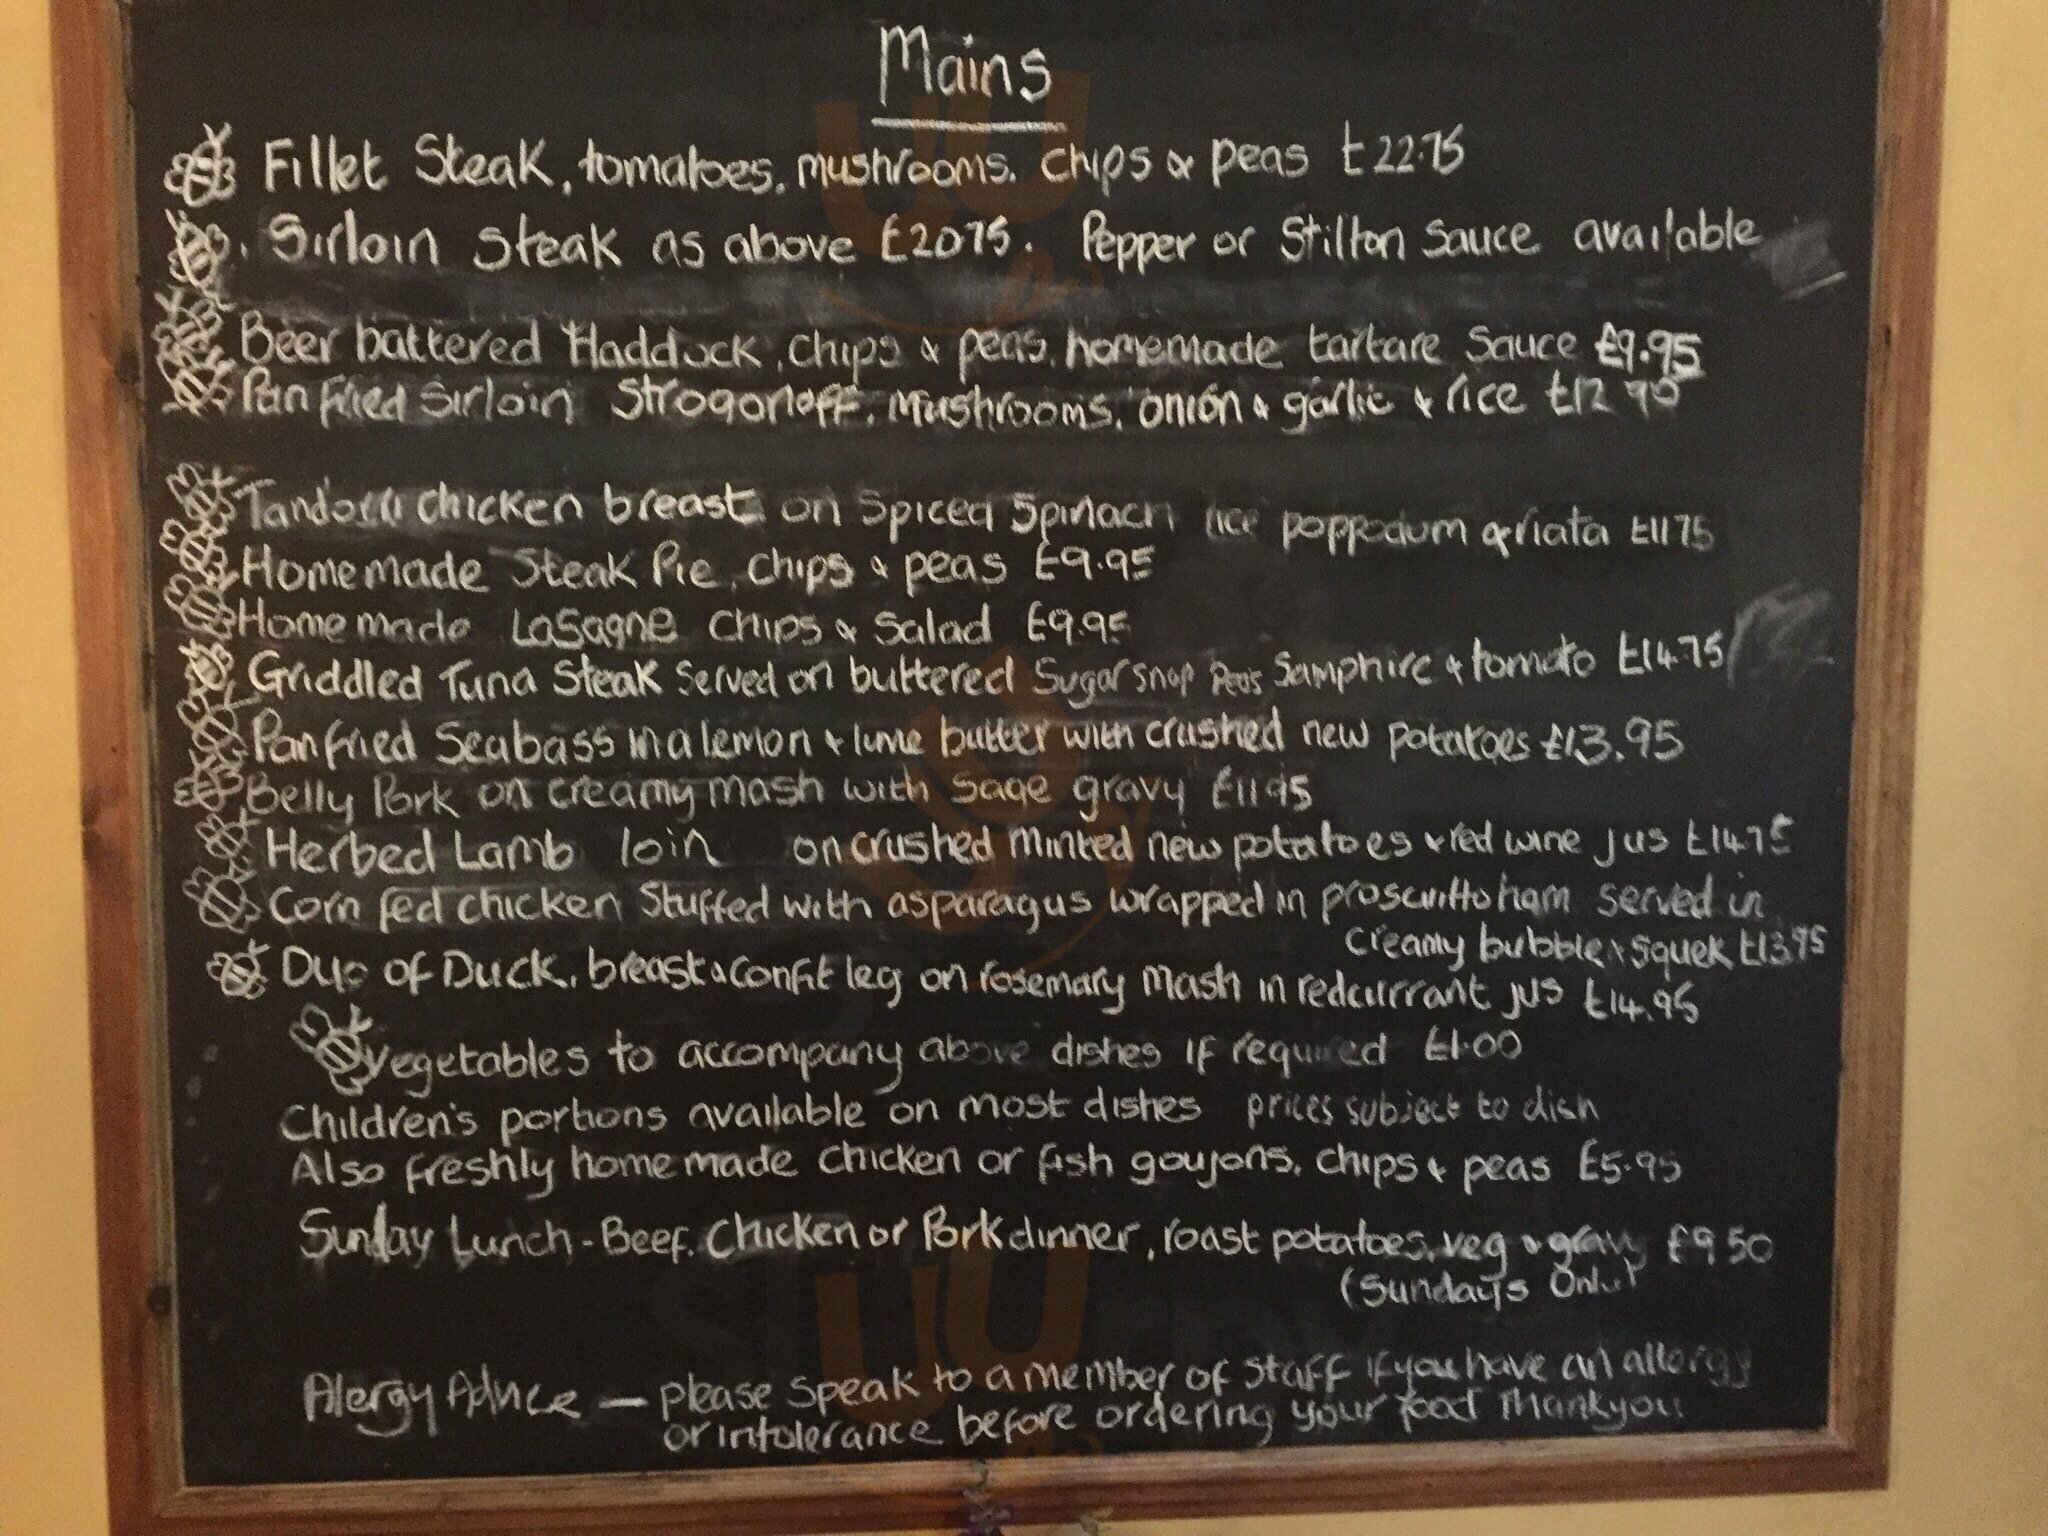 Mains
Fillet Steak, tomatoes, mushrooms, chips & peas £22.75
Sirloin Steak as above £20.75. Pepper or Stilton Sauce available
Beer battered Haddock, chips & peas, homemade tartare Sauce £9.95
Pan fried Sirloin Strogonoff, Mushrooms, onion & garlic & rice £12.95
Tandoori chicken breast on Spiced Spinach rice poppodum & riata £11.75
Homemade Steak Pie, chips & peas £9.95
Homemade Lasagne chips & Salad £9.95
Griddled Tuna Steak Served on buttered Sugar snap Peas Samphire & tomato £14.75
Pan fried Seabass in a lemon & lime butter with crushed new potatoes £13.95
Belly Pork on creamy mash with Sage gravy £11.95
Herbed Lamb loin on crushed minted new potatoes & red wine jus £14.75
Corn fed chicken Stuffed with asparagus wrapped in proscuitto ham served in
creamy bubble & squek £13.95
Duo of Duck, breast & confit leg on rosemary Mash in redcurrant jus £14.95
Vegetables to accompany above dishes if required £1.00
Children's portions available on most dishes prices subject to dish
Also freshly homemade chicken or fish goujons, chips & peas £5.95
Sunday Lunch - Beef, Chicken or Pork dinner, roast potatoes, veg & gravy £9.50
(Sundays Only)
Alergy Advice — please speak to a member of staff if you have an allergy
or intolerance before ordering your food Thankyou